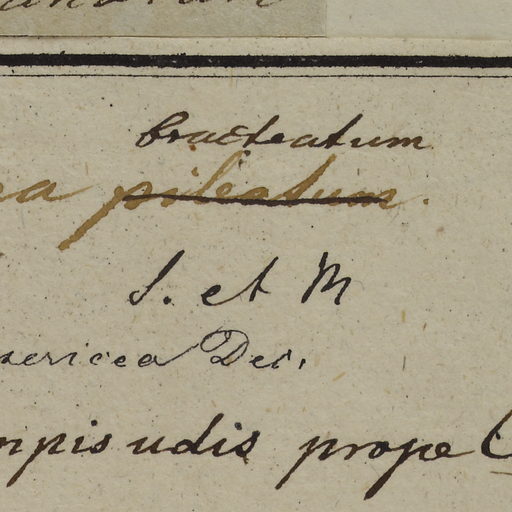 bracteatum
pileatum.
S. et M
sericea Dec.
udis prope